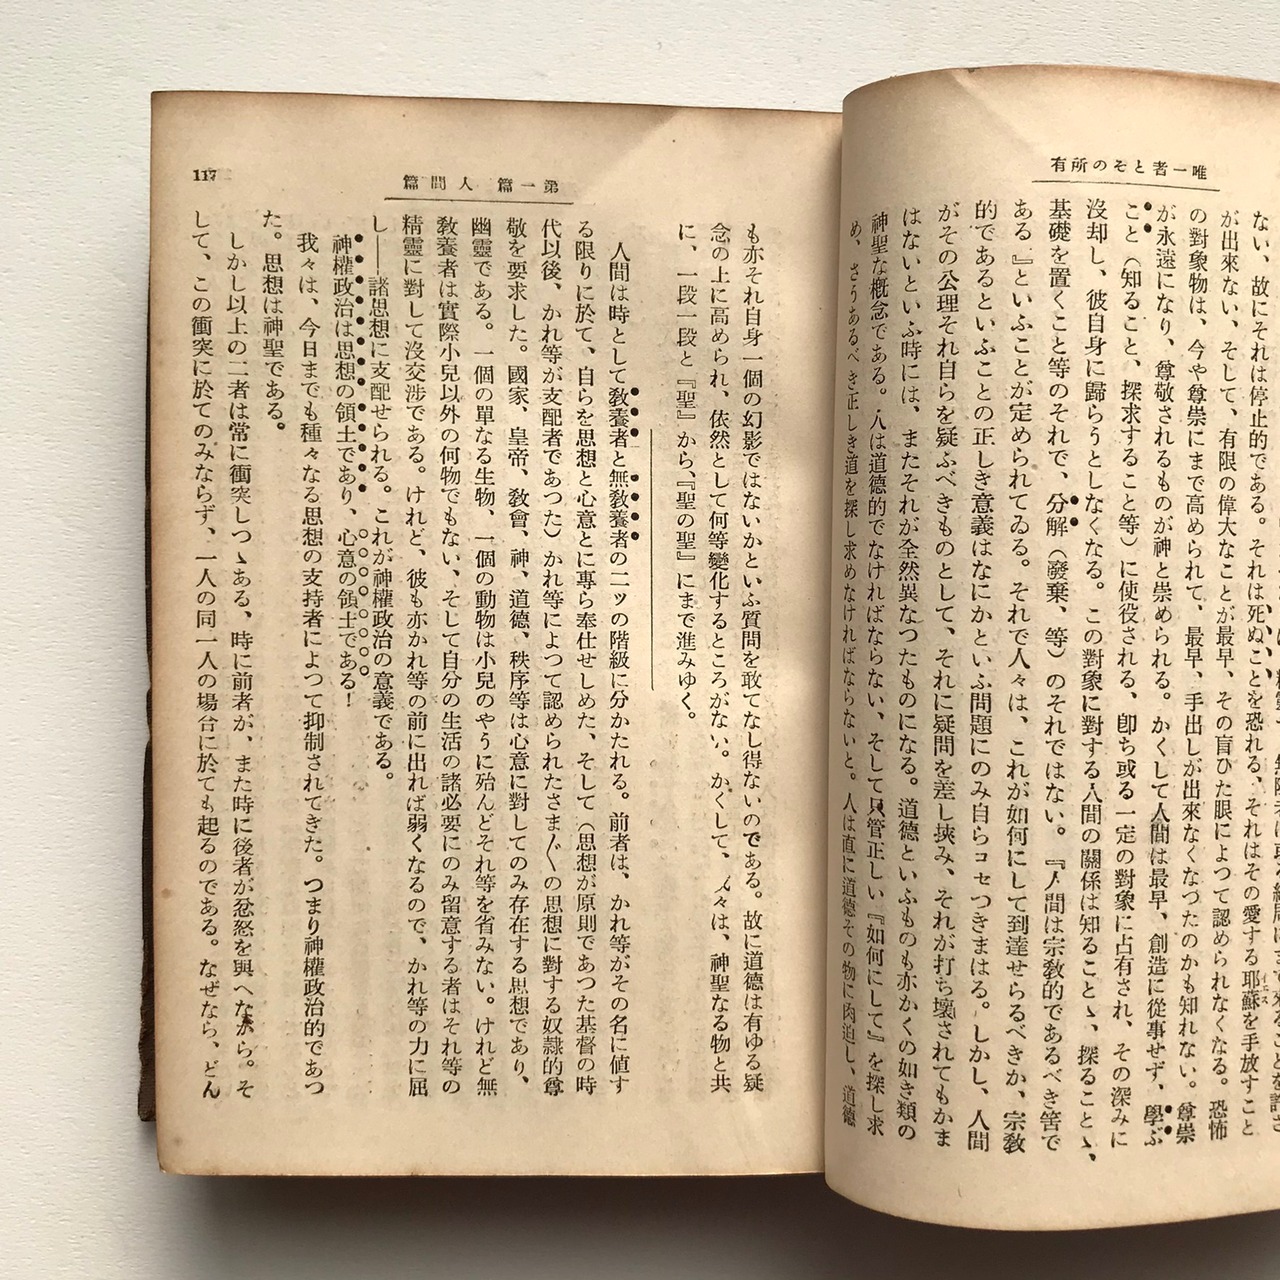 唯一者とその所有
ない、故にそれは停止的である。それは死ぬことを恐れる、それはその愛する耶蘇を手放すこと
イエス
が出來ない、そして、有限の偉大なことが最早、その盲ひた眼によつて認められなくなる。恐怖
の對象物は、今や尊崇にまで高められて、最早、手出しが出來なくなつたのかも知れない。尊崇
が永遠になり、尊敬されるものが神と崇められる。かくして人間は最早、創造に從事せず、學ぶ
こと（知ること、探求すること等）に使役される、卽ち或る一定の對象に占有され、その深みに
沒却し、彼自身に歸らうとしなくなる。この對象に對する人間の關係は知ること、探ること、
基礎を置くこと等のそれで、分解（廢棄、等）のそれではない。『人間は宗敎的であるべき筈で
ある』といふことが定められてゐる。それで人々は、これが如何にして到達せらるべきか、宗敎
的であるといふことの正しき意義はなにかといふ問題にのみ自らコセつきまはる。しかし、人間
がその公理それ自らを疑ふべきものとして、それに疑問を差し挾み、それが打ち壞されてもかま
はないといふ時には、またそれが全然異なつたものになる。道德といふものも亦かくの如き類の
神聖な概念である。人は道德的でなければならない、そして只管正しい『如何にして』を探し求
め、さうあるべき正しき道を探し求めなければならないと。人は直に道德その物に肉迫し、道德
第一篇　人間篇
117
も亦それ自身一個の幻影ではないかといふ質問を敢てなし得ないのである。故に道德は有ゆる疑
念の上に高められ、依然として何等變化するところがない。かくして、人々は、神聖なる物と共
に、一段一段と『聖』から、『聖の聖』にまで進みゆく。
人間は時として敎養者と無敎養者の二ツの階級に分かたれる。前者は、かれ等がその名に値す
る限りに於て、自らを思想と心意とに專ら奉仕せしめた、そして（思想が原則であつた基督の時
代以後、かれ等が支配者であつた）かれ等によつて認められたさま〲の思想に對する奴隷的尊
敬を要求した。國家、皇帝、敎會、神、道德、秩序等は心意に對してのみ存在する思想であり、
幽靈である。一個の單なる生物、一個の動物は小兒のやうに殆んどそれ等を省みない。けれど無
敎養者は實際小兒以外の何物でもない、そして自分の生活の諸必要にのみ留意する者はそれ等の
精靈に對して沒交涉である。けれど、彼も亦かれ等の前に出れば弱くなるので、かれ等の力に屈
し――諸思想に支配せられる。これが神權政治の意義である。
神權政治は思想の領土であり、心意の領土である！
我々は、今日までも種々なる思想の支持者によつて抑制されてきた。つまり神權政治的であつ
た。思想は神聖である。
しかし以上の二者は常に衝突しつゝある、時に前者が、また時に後者が忿怒を興へながら。そ
して、この衝突に於てのみならず、一人の同一人の場合に於ても起るのである。なぜなら、どん